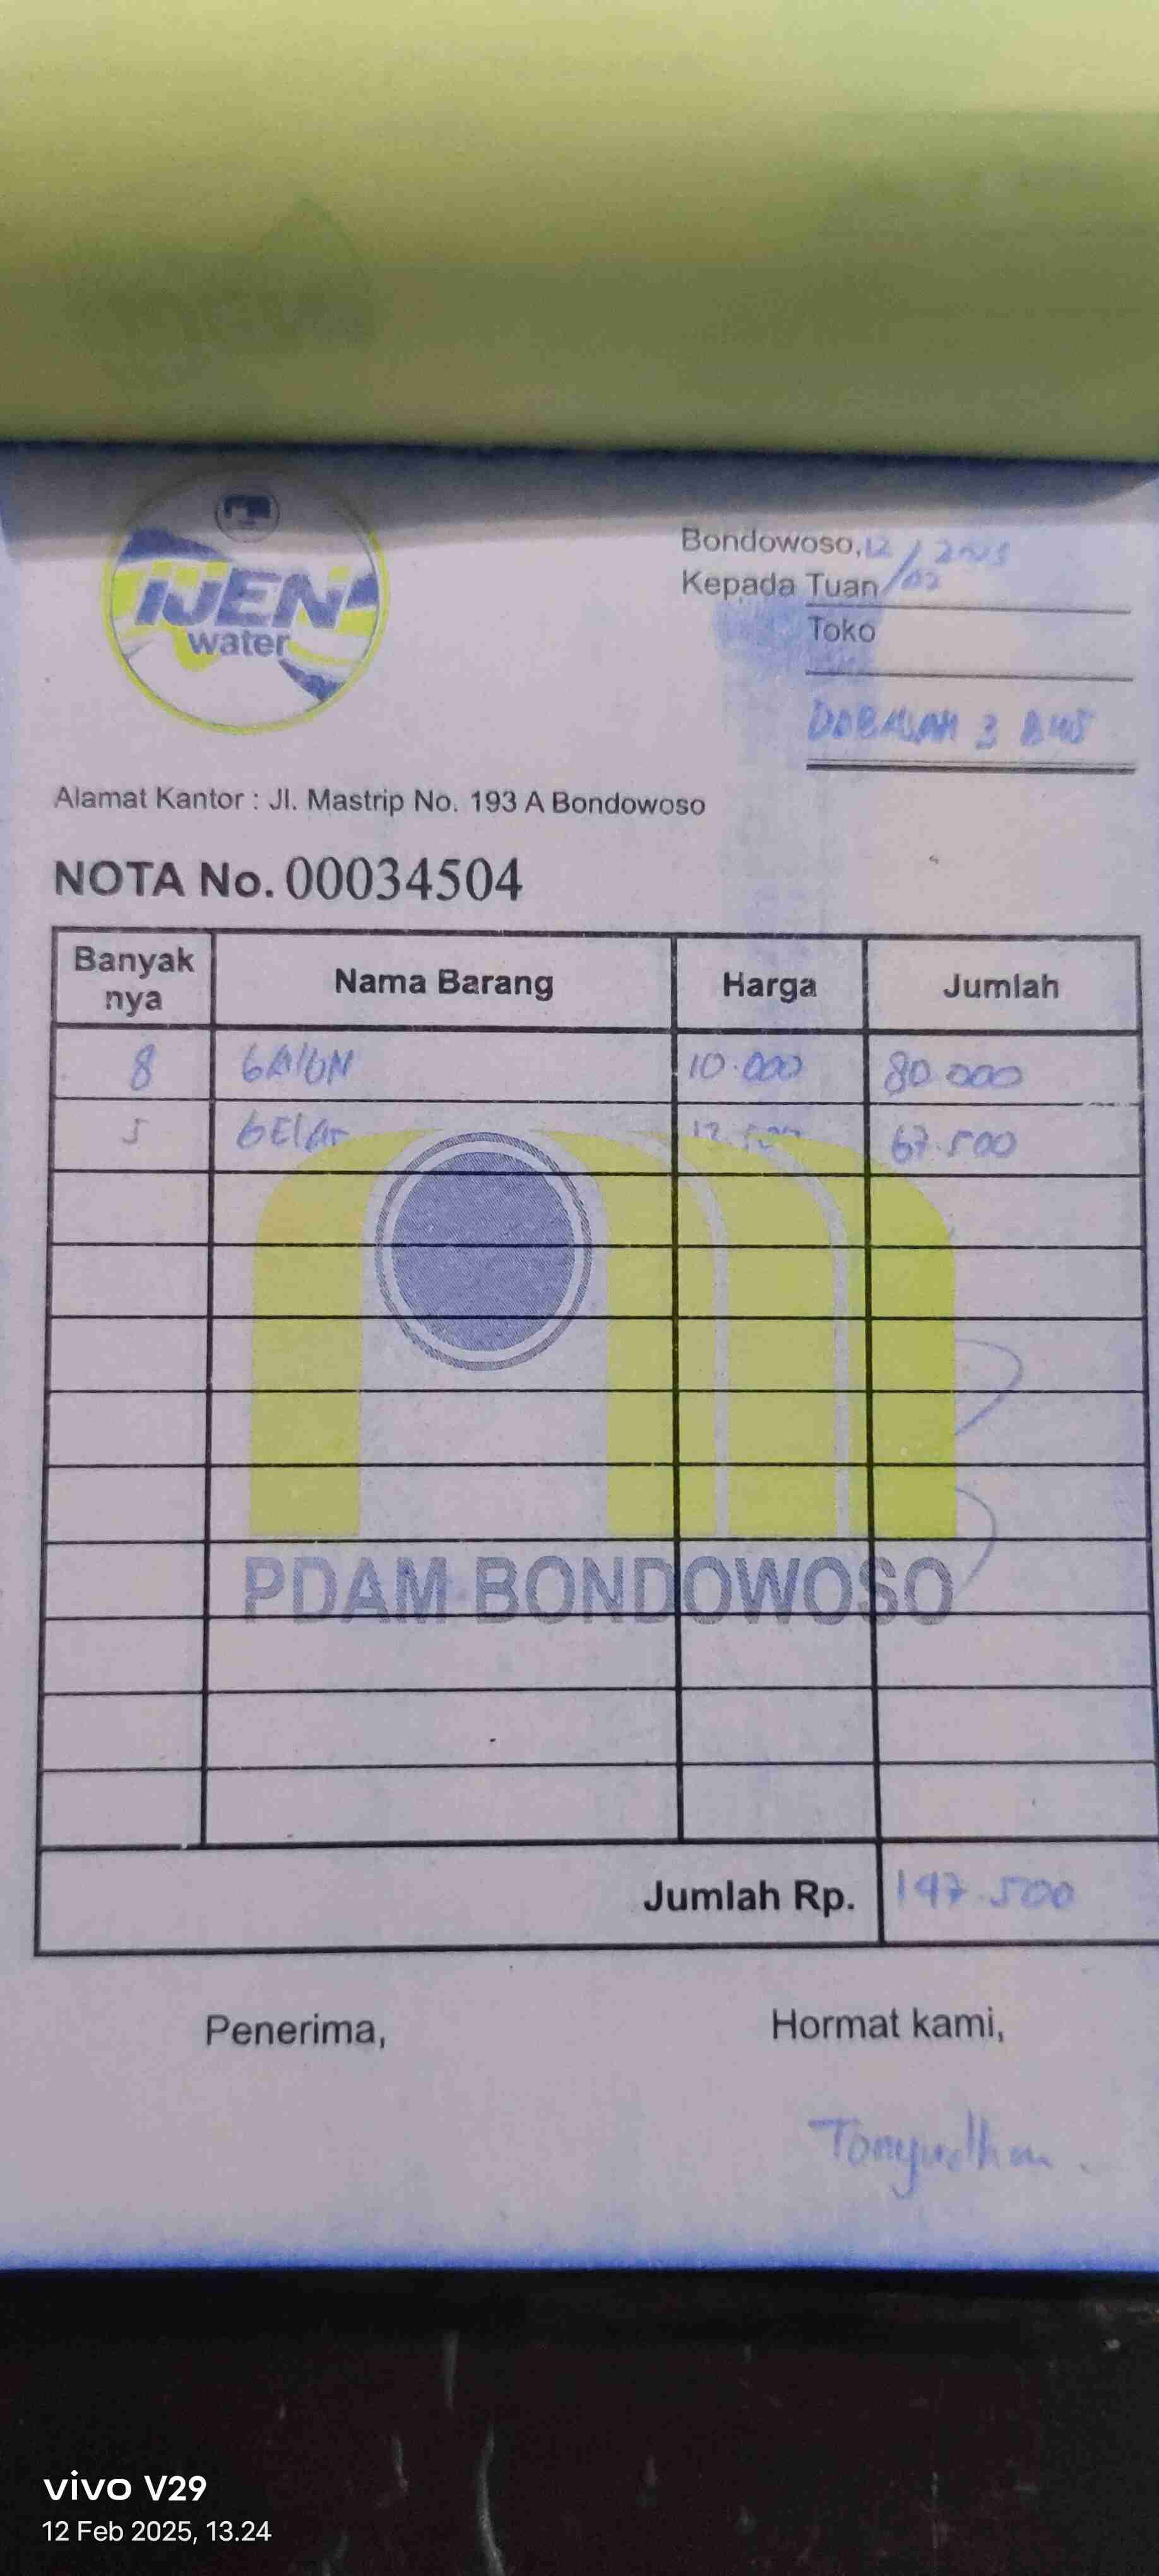 IJEN
water
Bondowoso, 12/02 2025
Kepada Tuan
Toko
3 BWS
Alamat Kantor : Jl. Mastrip No. 193 A Bondowoso
NOTA No. 00034504
Banyak nya Nama Barang Harga Jumlah
8 GALON 10.000 80.000
5 GELAS 67.500
PDAM BONDOWOSO
Jumlah Rp. 147.500
Penerima, Hormat kami,
vivo V29
12 Feb 2025, 13.24